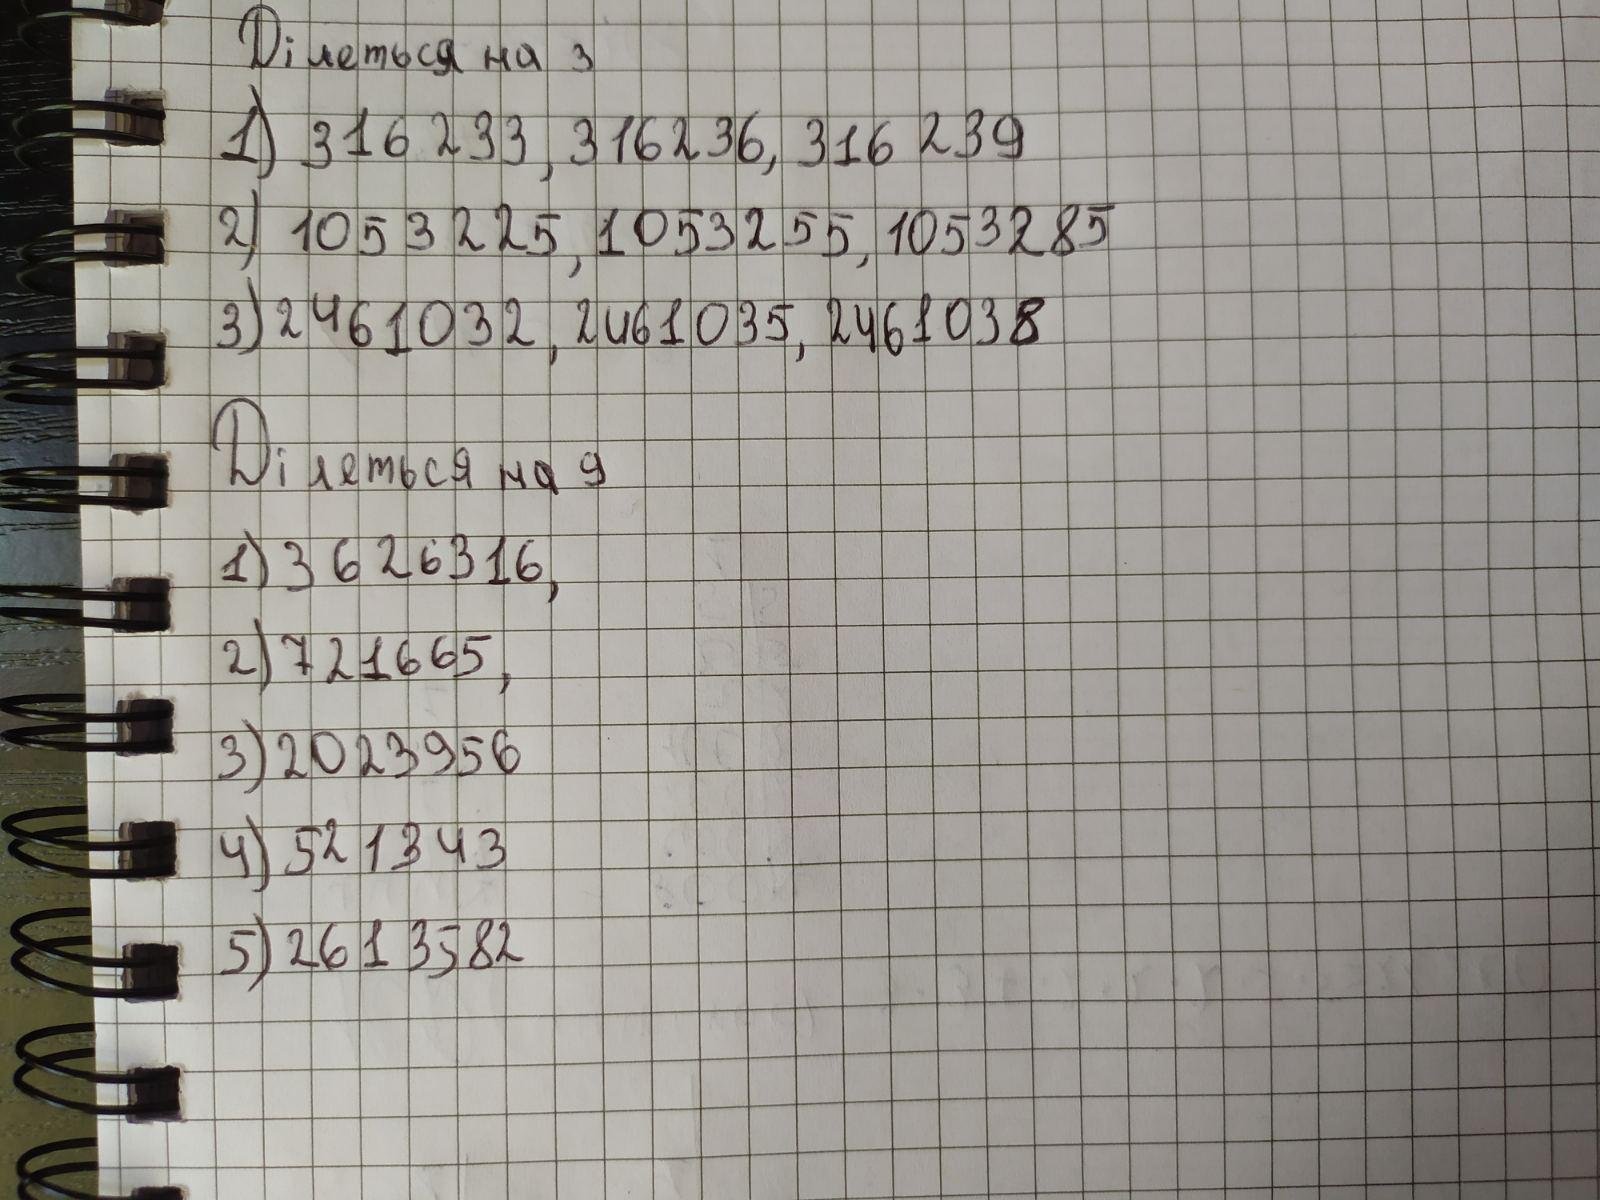 Ділеться на 3
1) 316 233, 316236, 316 239
2) 1053225, 1053255, 1053285
3) 2461032, 2461035, 2461038
Ділеться на 9
1) 3626316,
2) 721665,
3) 2023956
4) 521343
5) 2613582